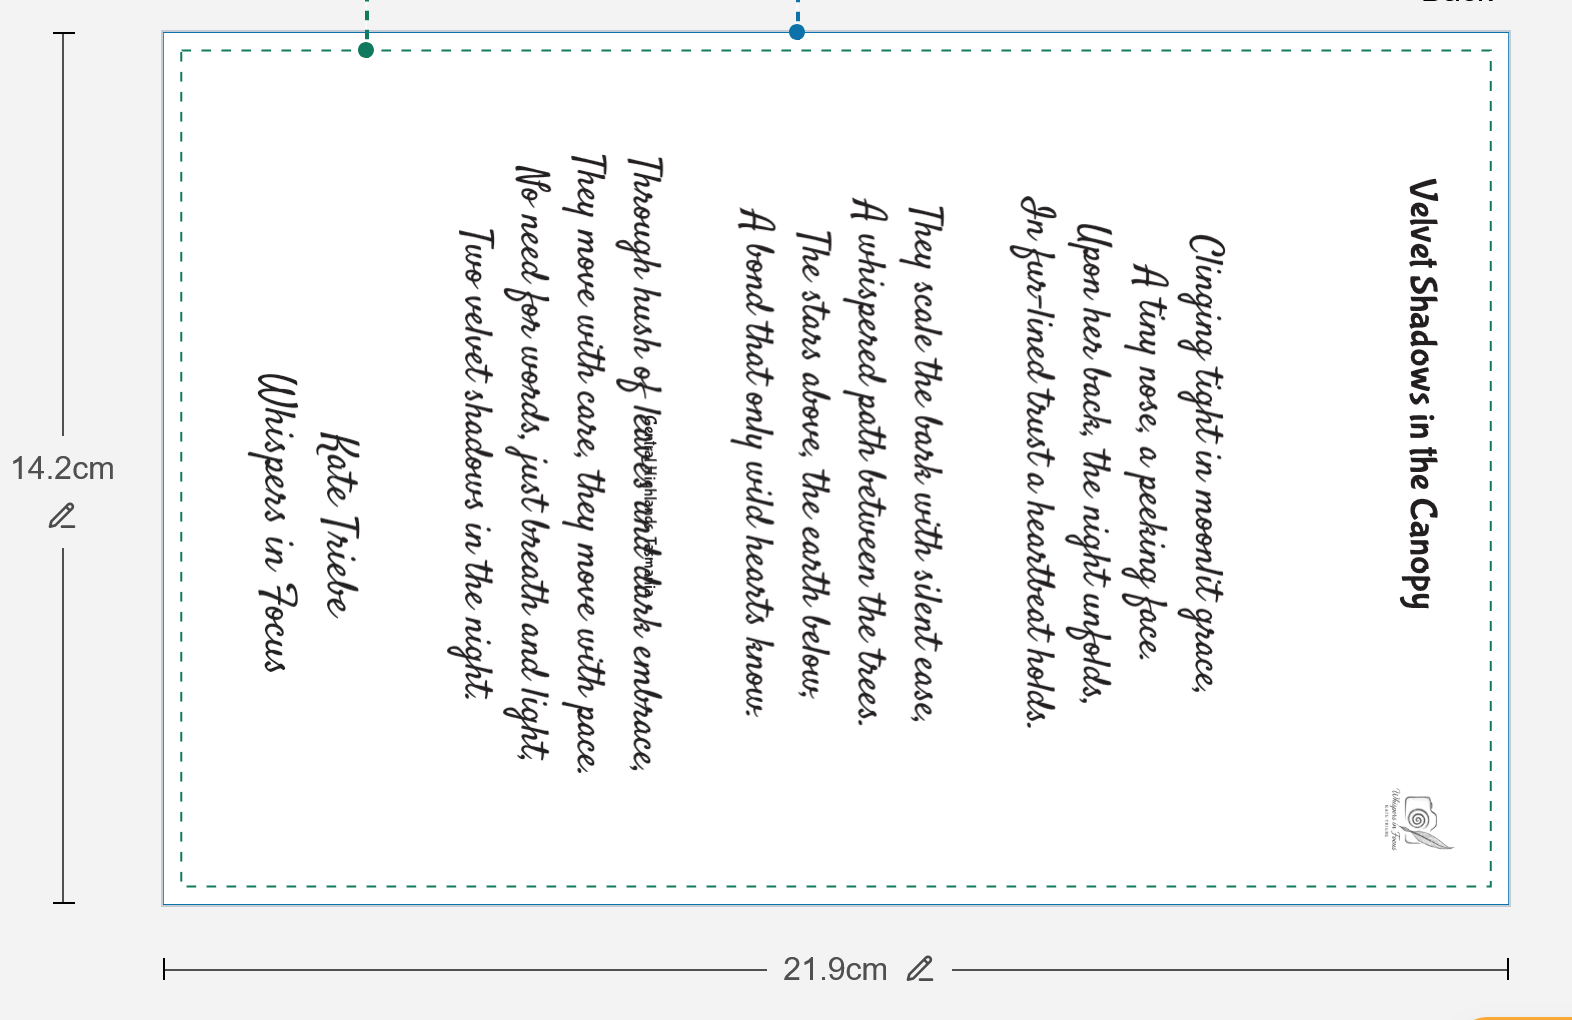 Back
Velvet Shadows in the Canopy
Clinging tight in moonlit grace,
A tiny nose, a peeking face.
Upon her back, the night unfolds,
In fur-lined trust a heartbeat holds.
They scale the bark with silent ease,
A whispered path between the trees.
The stars above, the earth below,
A bond that only wild hearts know.
Through hush of leaves and dark embrace,
Central Highlands, Tasmania
They move with care, they move with pace.
No need for words, just breath and light,
Two velvet shadows in the night.
Kate Triebe
Whispers in Focus
Whispers in Focus
KATE TRIEBE
14.2cm
21.9cm